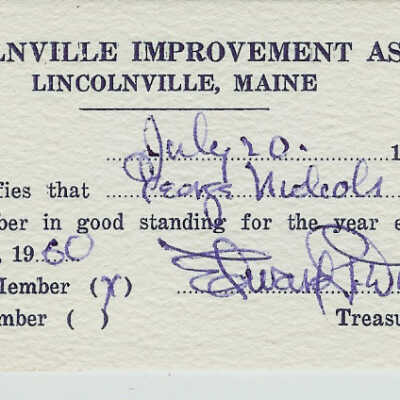 LNVILLE IMPROVEMENT AS
LINCOLNVILLE, MAINE
July 20. 1
fies that George Nichols
ber in good standing for the year e
, 1960
Member (X)
mber ( )
Treasu